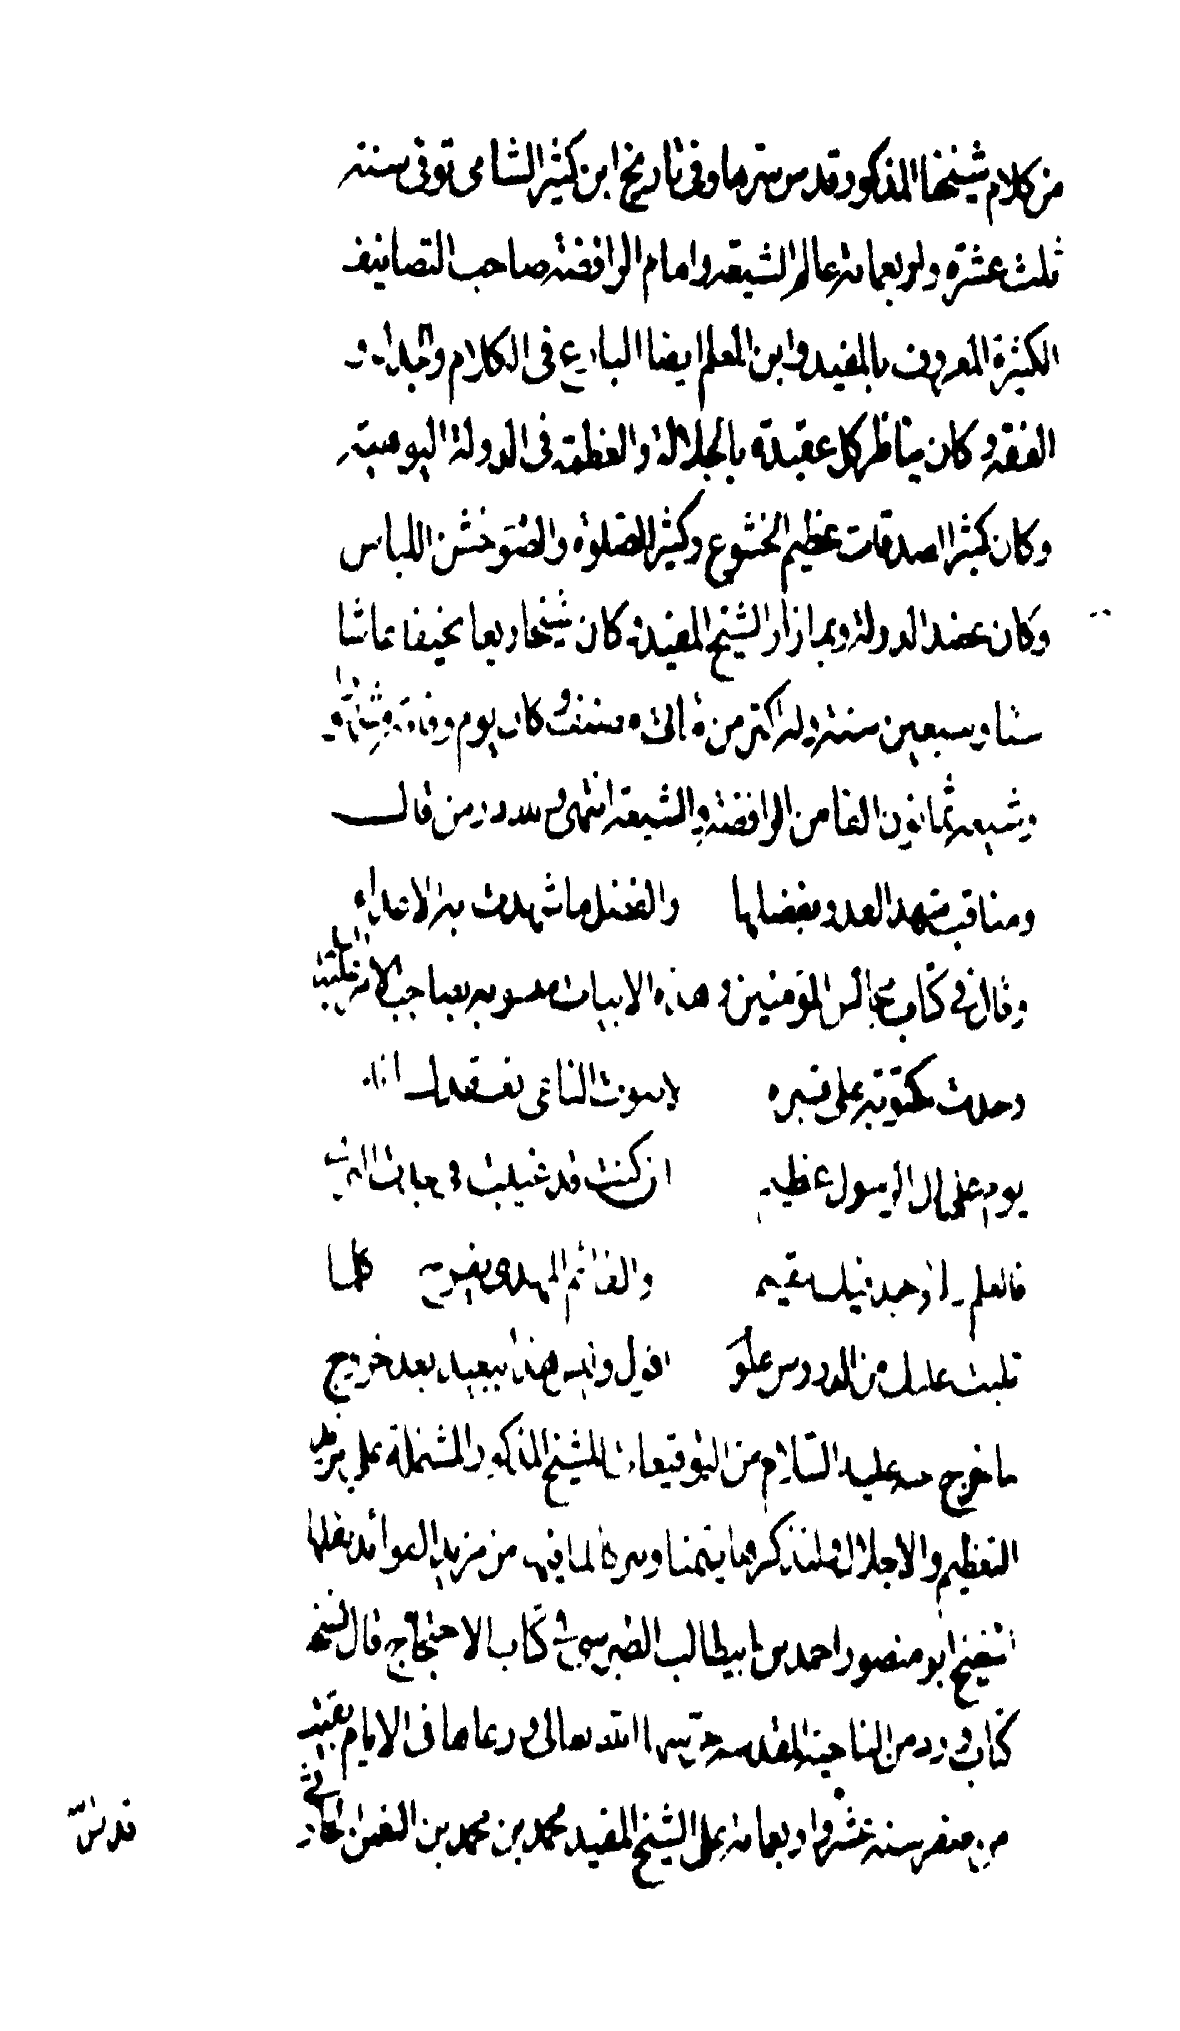 من كلام شيخنا المذكور قدس سرهما وفى تاريخ ابن كثير الشامى توفى سنة
ثلث عشرة واربعمائة عالم الشيعة وامام الرافضة صاحب التصانيف
الكثيرة المعروف بالمفيد وابن المعلم ايضا البارع فى الكلام والجدل و
الفقه وكان يناظر كل عقيدة بالجلالة والعظمة فى الدولة البويهية
وكان كثير الصدقات عظيم الخشوع وكثير الصلوة والصوم خشن اللباس
وكان عضد الدولة ربما زار الشيخ المفيد كان شيخا ربعا نحيفا عاش
ستا وسبعين سنة وله اكثر من مائتى كان يوم وفاته
وشيعه ثمانون الفا من الرافضة والشيعة انتهى در من قال
ومناقب شهد العدو بفضلها والفضل ما شهدت به الاعداء
وقال فى كتاب مجالس المؤمنين وهذه الابيات منسوبة لصاحب الامر
وجدت مكتوبة على قبره لا صوت الناعى بفقدك انه
يوم على ال الرسول عظيم ان كنت قد غيبت فى
فالعلم والتوحيد فيك مقيم والقائم المهدى يفرح كلما
تليت عليك من الدروس علوم اقول وليس هذا ببعيد بعد خروج
ما خرج عنه عليه السلام من التوقيعات للشيخ المذكور المشتملة على مزيد
التعظيم والاجلال ولنذكرها تيمنا وتبركا لما فيها من مزيد الفوائد نقلها
الشيخ ابو منصور احمد بن ابيطالب الطبرسى فى كتاب الاحتجاج قال نسخة
كتاب ورد من الناحية المقدسة حرسها الله تعالى ورعاها فى الايام بقيت
من صفر سنة عشر واربعمائة على الشيخ المفيد محمد بن محمد بن النعمان الحارثى
قدس